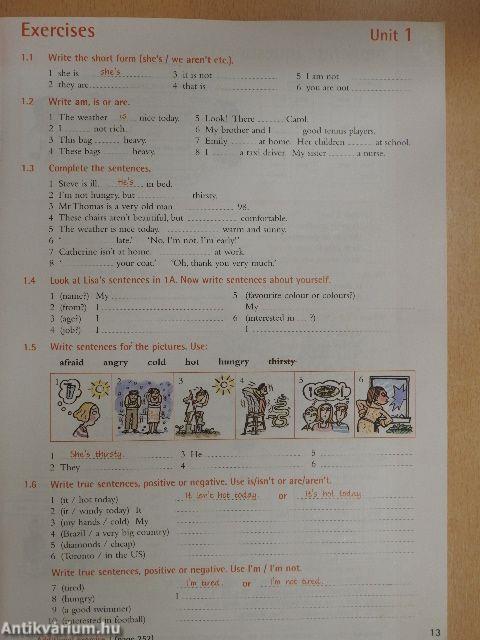 Exercises
Unit 1
1.1 Write the short form (she's / we aren't etc.).
1 she is she's 3 it is not 5 I am not
2 they are 4 that is 6 you are not
1.2 Write am, is or are.
1 The weather is nice today. 5 Look! There Carol.
2 I not rich. 6 My brother and I good tennis players.
3 This bag heavy. 7 Emily at home. Her children at school.
4 These bags heavy. 8 I a taxi driver. My sister a nurse.
1.3 Complete the sentences.
1 Steve is ill. He's in bed.
2 I'm not hungry, but thirsty.
3 Mr Thomas is a very old man. 98.
4 These chairs aren't beautiful, but comfortable.
5 The weather is nice today. warm and sunny.
6 ' late.' 'No, I'm not. I'm early!'
7 Catherine isn't at home. at work.
8 ' your coat.' 'Oh, thank you very much.'
1.4 Look at Lisa's sentences in 1A. Now write sentences about yourself.
1 (name?) My 5 (favourite colour or colours?)
2 (from?) I My
3 (age?) I 6 (interested in ... ?)
4 (job?) I I
1.5 Write sentences for the pictures. Use:
afraid angry cold hot hungry thirsty
1 2 3 4 5 6
1 She's thirsty. 3 He 5
2 They 4 6
1.6 Write true sentences, positive or negative. Use is/isn't or are/aren't.
1 (it / hot today) It isn't hot today. or It's hot today.
2 (it / windy today) It
3 (my hands / cold) My
4 (Brazil / a very big country)
5 (diamonds / cheap)
6 (Toronto / in the US)
Write true sentences, positive or negative. Use I'm / I'm not.
7 (tired) I'm tired. or I'm not tired.
8 (hungry) I
9 (a good swimmer)
10 (interested in football)
(page 252)
13
Antikvarium.hu